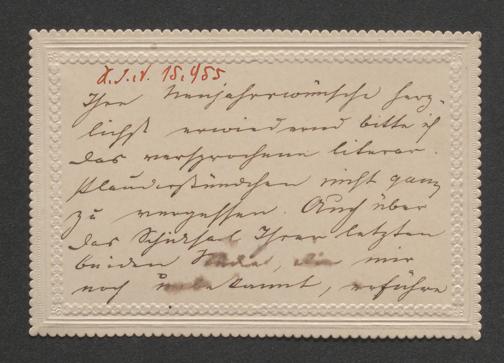 15.1/85
Ihre Neujahrswünsche herz-
lichst erwiedernd bitte ich
das versprochene literar.
Plauderstündchen nicht ganz
zu vergessen. Auch über
das Schicksal Ihrer letzten
beiden die mir
noch unbekannt, erführe